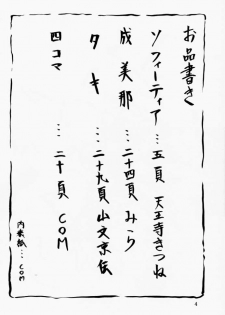 お品書き
ソフィーティア…五頁 天王寺きつね
成美那…二十四頁 みくら
タキ…二十九頁 山文京伝
四コマ…二十頁 COM
内表紙…COM
4